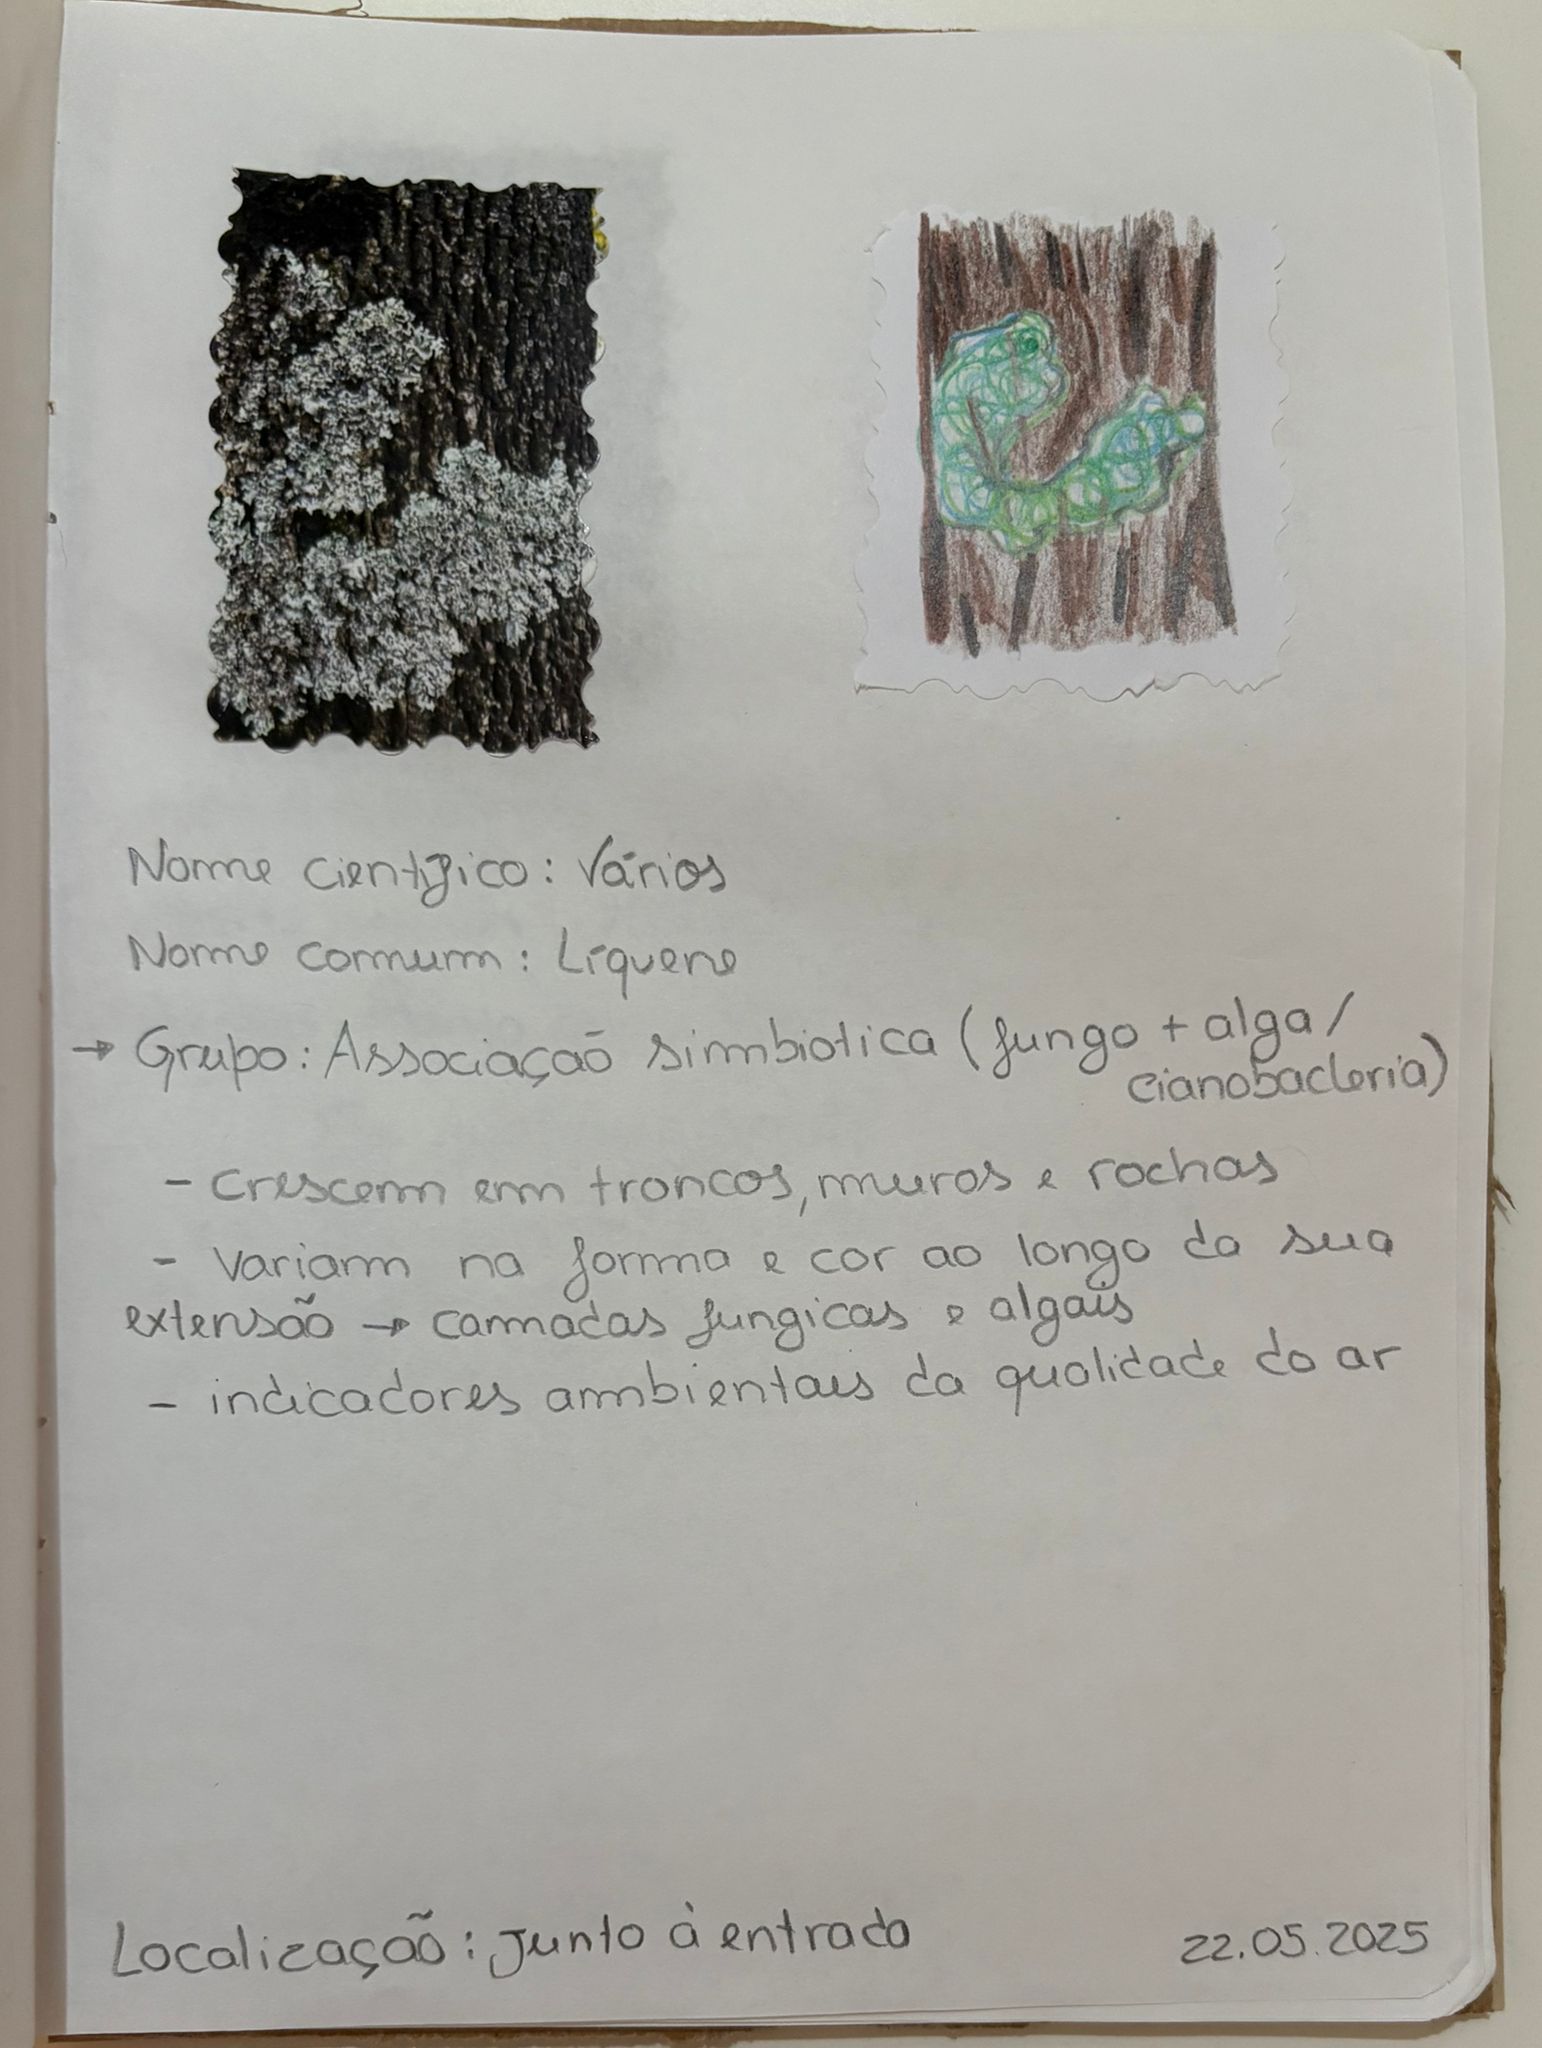 Nome científico: Vários
Nome comum: Líquene
→ Grupo: Associação simbiotica (fungo + alga/
cianobacteria)
- Crescem em troncos, muros e rochas
- Variam na forma e cor ao longo da sua
extensão → camadas fungicas e algais
- indicadores ambientais da qualidade do ar
Localização: Junto à entrada
22.05.2025